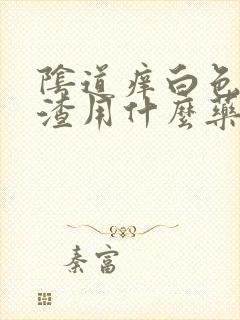 陰道痒白色
渣用什麼藥
秦富